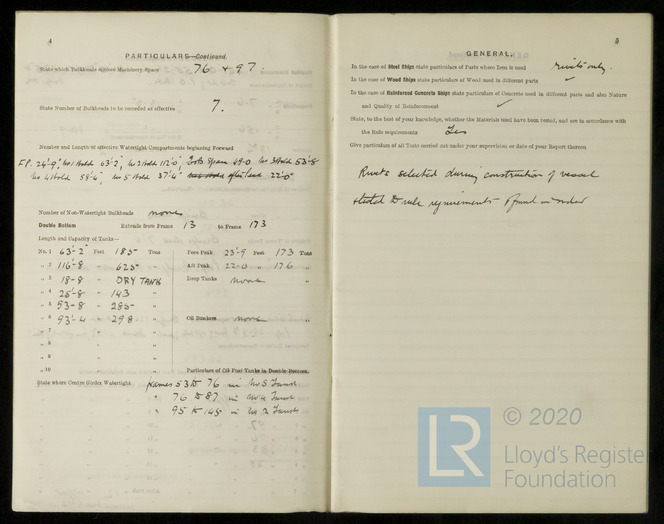 4
PARTICULARS—Continued.
State which Bulkheads enclose Machinery Space 76 & 97.
State Number of Bulkheads to be recorded as effective 7.
Number and Length of effective Watertight Compartments beginning Forward
F.P. 24'-9", No 1 Hold 63'-2", No 2 Hold 112'-0", Space 49-0 No 3 Hold 53'-8
No 4 Hold 58'-4", No 5 Hold 37'-4" 22'-0"
Number of Non-Watertight Bulkheads none
Double Bottom Extends from Frame 13 to Frame 173
Length and Capacity of Tanks—
No. 1 63'-2" Feet 185 Tons Fore Peak 23'-9 Feet 173 Tons
„ 2 116'-8 „ 625 „ Aft Peak 22-0 „ 176 „
„ 3 18-8 DRY TANK Deep Tanks none „
„ 4 28'-8 „ 143
„ 5 53-8 „ 285 „
„ 6 93'-4 „ 298 Oil Bunkers none „
„ 7 „ „
„ 8 „ „
„ 9 „ „
„ 10 Particulars of Oil Fuel Tanks in Double Bottom.
State where Centre Girder Watertight frames 53 to 76 in No 5 Tank
„ 76 to 87 in No 4 Tank
„ 95 to 145 in No 2 Tank
5
GENERAL.
In the case of Steel Ships state particulars of Parts where Iron is used rivets only.
In the case of Wood Ships state particulars of Wood used in different parts ✓
In the case of Reinforced Concrete Ships state particulars of Concrete used in different parts and also Nature
and Quality of Reinforcement ✓
State, to the best of your knowledge, whether the Materials used have been tested, and are in accordance with
the Rule requirements Yes
Give particulars of all Tests carried out under your supervision or date of your Report thereon
Rivets selected during construction of vessel
tested to rule requirements & found in order
LR
© 2020
Lloyd's Register
Foundation